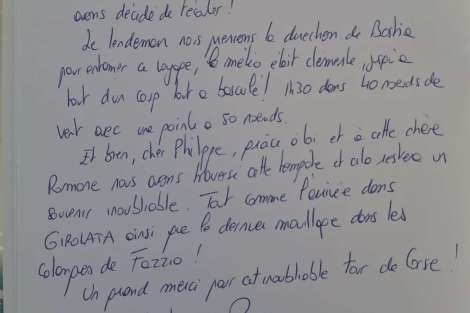 avons décidé de rester !
Le lendemain nous prenions la direction de Bastia
pour entamer ce voyage, la météo était clemente jusqu'a
tout d'un coup tout a basculé ! 1h30 dans 40 noeuds de
vent avec une pointe a 50 noeuds.
Et bien, cher Philippe, grâce à toi et à cette chère
Romane nous avons traversé cette tempête et cela restera un
souvenir inoubliable. Tout comme l'arrivée dans
GIROLATA ainsi que le dernier mouillage dans les
calanques de Fazzio !
Un grand merci pour cet inoubliable tour de Corse !